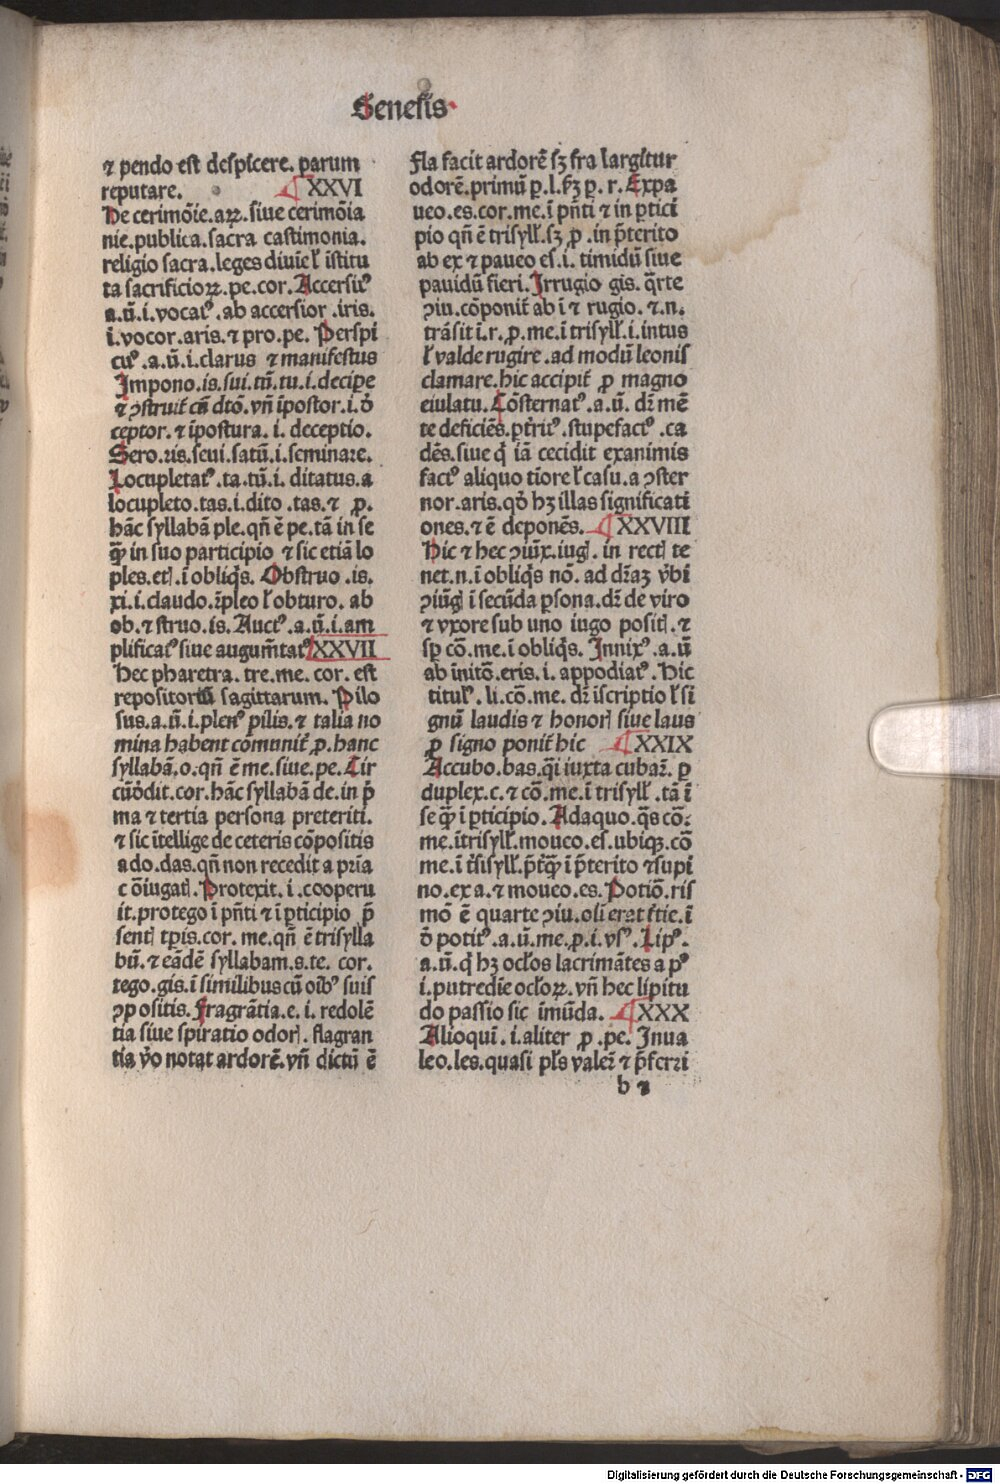 Genesis
⁊ pendo est despicere. parum
reputare. XXVI
De cerimõie.aꝝ.siue cerimõia
nie.publica.sacra castimonia.
religio sacra.leges diuiẽ ł istitu
ta sacrificioꝝ.pe.cor. Accersitꝰ
a.ũ.i.vocatꝰ.ab accersior .iris.
i.vocor.aris.⁊ pro.pe. Perspi
cuꝰ.a.ũ.i.clarus ⁊ manifestus
Impono.is.sui.tũ.tu.i.decipe
⁊ ꝯstruit̃ cũ dtõ.vñ ĩpostor.i.ď
ceptor.⁊ ĩpostura.i. deceptio.
Sero.ris.seui.satũ.i.seminare.
Locupletatꝰ.ta.tũ.i. ditatus.a
locupleto.tas.i.dito .tas.⁊ ꝓ.
hãc syllabã ple.qñ ẽ pe.tã in se
ꝙ̃ in suo participio ⁊ sic etiã lo
ples.etꝭ.ĩ obliq̃s. Obstruo .is.
xi.i.claudo.r̃pleo ł obturo. ab
ob.⁊ struo.is. Auctꝰ.a.ũ.i.am
plificatꝰ siue augum̃tatꝰ XXVII
Hec pharetra. tre.me. cor. est
repositoriũ sagittarum. Pilo
sus.a.ũ.i.plenꝰ pilis.⁊ talia no
mina habent cõmunit̃ ꝓ.hanc
syllabã.o.qñ ẽ me.siue.pe. Cir
cũďdit.cor.hãc syllabã de.in p̃
ma ⁊ tertia persona preteriti.
⁊ sic ĩtellige de ceteris cõpositis
a do.das.qñ non recedit a pria
cõiugatꝭ. Protexit.i.cooperu
it.protego ĩ pñti ⁊ ĩ ꝑticipio p̃
sentꝭ tp̃is.cor. me.qñ ẽ trisylla
bũ.⁊ eãdẽ syllabam.s.te. cor.
tego.gis.ĩ similibus cũ oĩbꝰ suis
ꝯpositis. Fragrãtia.e.i. redolẽ
tia siue spiratio odorꝭ. flagran
tia ṽo notat ardorẽ.vñ dictũ ẽ
Fla facit ardorẽ sꝫ fra largitur
odorẽ.primũ ꝑ.l.ẜꝫ ꝑ.r. Expa
ueo.es.cor.me.ĩ pñti ⁊ in ꝑtici
pio qñ ẽ trisyłł.sꝫ ꝓ .in p̃terito
ab ex ⁊ paueo es.i. timidũ siue
pauidũ fieri. Irrugio gis. q̃rte
ꝯiu.cõponit̃ ab ĩ ⁊ rugio. ⁊.n.
trãsit ĩ.r.ꝓ.me.ĩ trisyłł.i.intus
ł valde rugire .ad modũ leonis
clamare.hic accipit̃ ꝓ magno
eiulatu. Cõsternatꝰ.a.ũ. dr̃ mẽ
te deficiẽs.ꝑt̃ritꝰ.stupefactꝰ.ca
dẽs.siue q̃ iã cecidit exanimis
factꝰ aliquo tĩore ł casu.a ꝯster
nor.aris.qď hꝫ illas significati
ones.⁊ ẽ deponẽs. XXVIII
Hic ⁊ hec ꝯiũx.iugꝭ. in rectꝭ te
net.n.ĩ obliq̃s nõ. ad dr̃aꝫ ṽbi
ꝯiũgꝭ ĩ secũda ꝑsona.dr̃ de viro
⁊ vxore sub uno iugo positꝭ.⁊
sꝑ cõ.me.ĩ obliq̃s. Innixꝰ.a.ũ
ab ĩnitõ.eris.i. appodiatꝰ. Hic
titulꝰ. li.cõ.me. dr̃ ĩscriptio ł si
gnũ laudis ⁊ honorꝭ siue laus
ꝓ signo ponit̃ hic XXIX
Accubo.bas.q̃i iuxta cubar̃. ꝑ
duplex.c.⁊ cõ.me.ĩ trisyłł .tã ĩ
se ꝙ̃ ĩ ꝑticipio. Adaquo.q̃s cõ.
me.ĩtrisyłł.mouco.es.ubiqꝫ.cõ
me.ĩ tr̃isyłł.p̃tꝙ̃ ĩ p̃terito ⁊ supi
no.ex a.⁊ moueo.es. Potiõ.ris
mõ ẽ quarte ꝯiu.oli erat t̃tie.ĩ
ď potitꝰ.a.ũ.me.ꝓ.i.vsꝰ. Lipꝰ.
a.ũ.q̃ hꝫ ocłos lacrimãtes a pꝰ
i.putredie ocłoꝝ.vñ hec lipitu
do passio sic ĩmũda. XXX
Alioqui.i.aliter ꝓ .pe. Inua
leo.les.quasi pl̃s valer̃ ⁊ p̃ferri
b 2
Digitalisierung gefördert durch die Deutsche Forschungsgemeinschaft - DFG